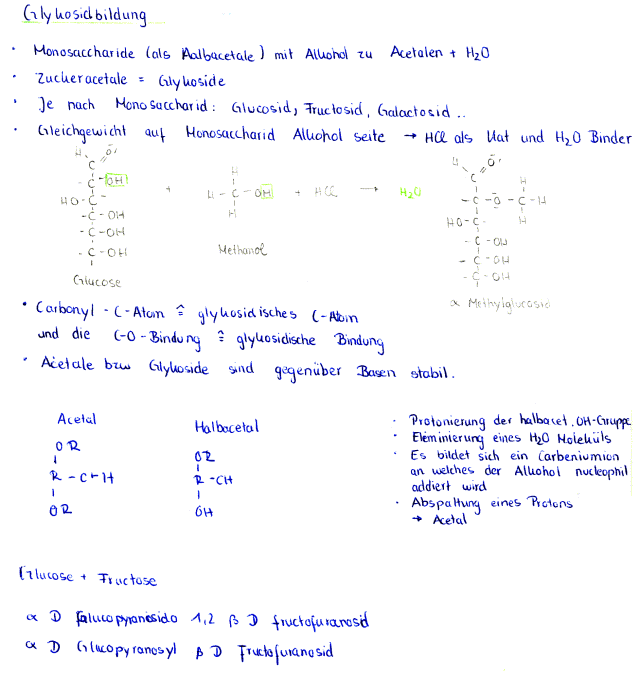 Glykosidbildung
· Monosaccharide (als Halbacetale) mit Alkohol zu Acetalen + H₂O
· Zuckeracetale = Glykoside
· Je nach Monosaccharid: Glucosid, Fructosid, Galactosid ..
· Gleichgewicht auf Monosaccharid Alkohol seite → HCl als Kat und H₂O Binder
H O
C
- C - OH
HO - C -
- C - OH
- C - OH
- C - OH
Glucose
+
H
H - C - OH
H
Methanol
+ HCl → H₂O
H O
C H
- C - O - C - H
HO - C - H
- C - OH
- C - OH
- C - OH
α Methylglucosid
· Carbonyl - C - Atom ≙ glykosidisches C-Atom
und die C-O-Bindung ≙ glykosidische Bindung
· Acetale bzw Glykoside sind gegenüber Basen stabil.
Acetal
OR
R - C - H
OR
Halbacetal
OR
R - CH
OH
· Protonierung der halbacet. OH-Gruppe
· Eleminierung eines H₂O Moleküls
· Es bildet sich ein Carbeniumion
an welches der Alkohol nucleophil
addiert wird
· Abspaltung eines Protons
→ Acetal
Glucose + Fructose
α D Glucopyranosido 1,2 β D fructofuranosid
α D Glucopyranosyl β D Fructofuranosid